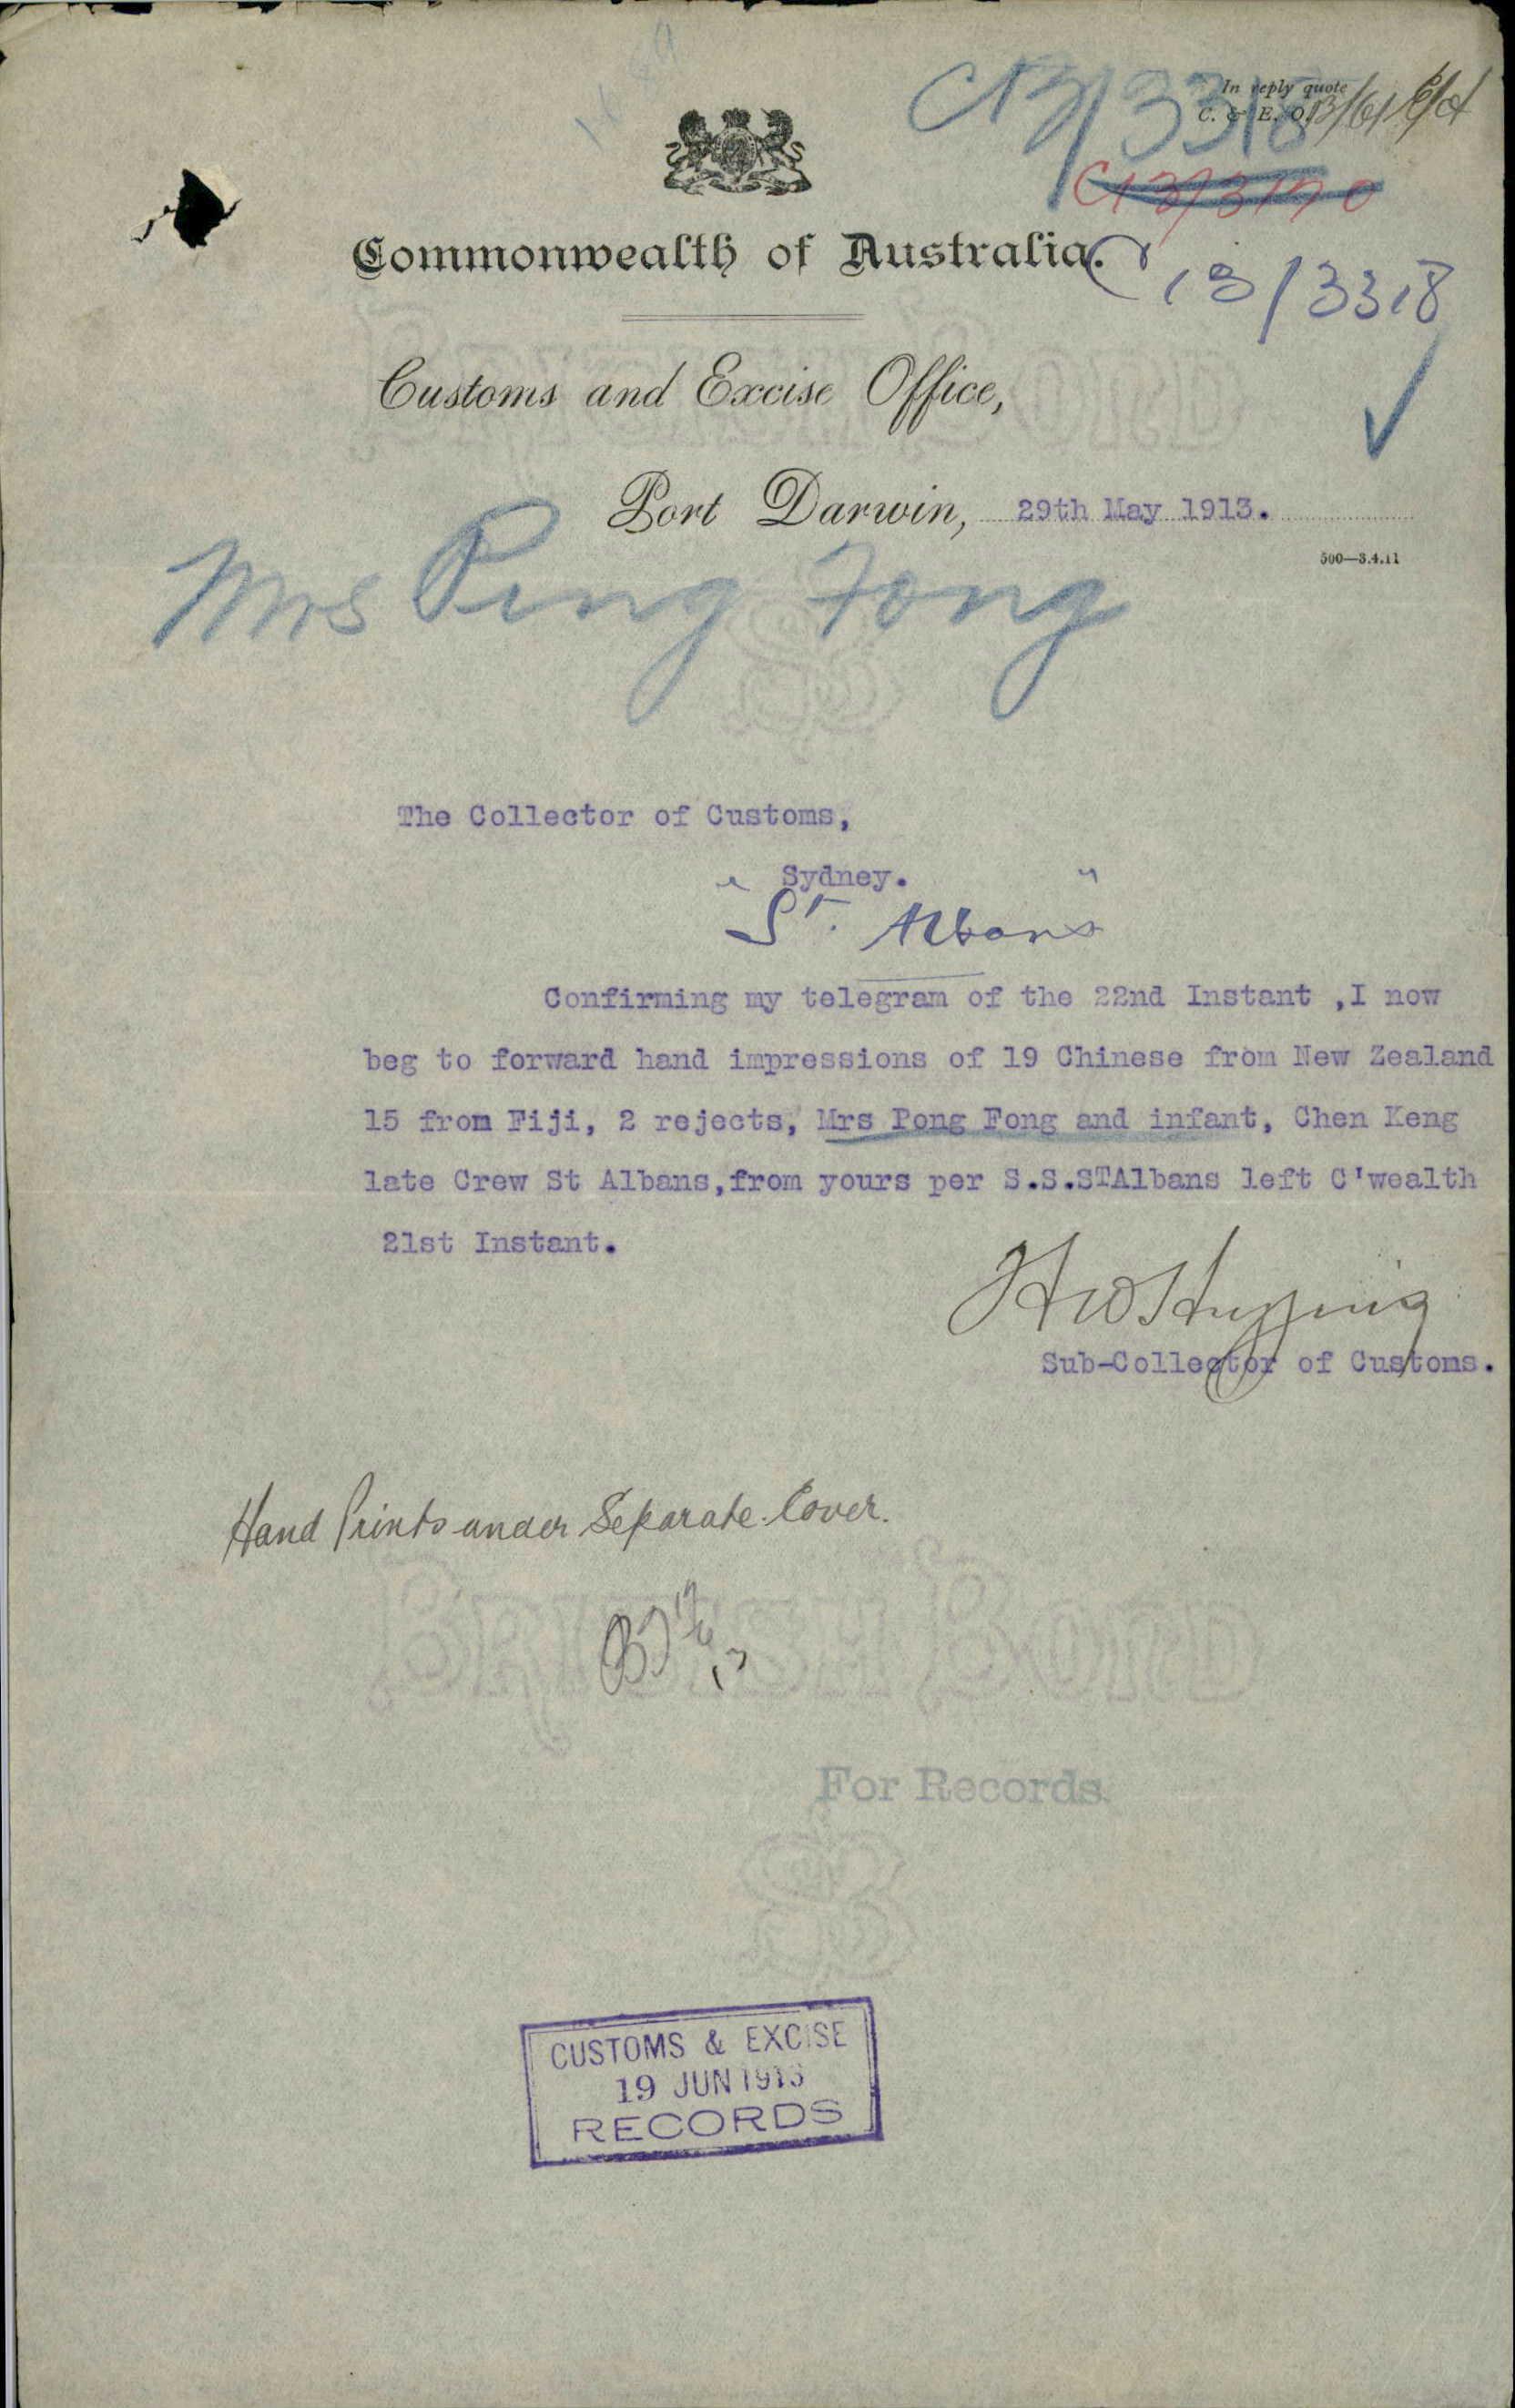 In reply quote
C. & E. O.
C13/3318
C13/3170
Commonwealth of Australia.
13/3318
Customs and Excise Office,
Port Darwin, 29th May 1913.
500—3.4.11
Mrs Ping Fong
The Collector of Customs,
Sydney.
"St. Albans"
Confirming my telegram of the 22nd Instant ,I now
beg to forward hand impressions of 19 Chinese from New Zealand
15 from Fiji, 2 rejects, Mrs Pong Fong and infant, Chen Keng
late Crew St Albans,from yours per S.S.STAlbans left C'wealth
21st Instant.
Sub-Collector of Customs.
Hand Prints under Separate Cover.
BRITISH BOND
For Records
CUSTOMS & EXCISE
19 JUN 1913
RECORDS